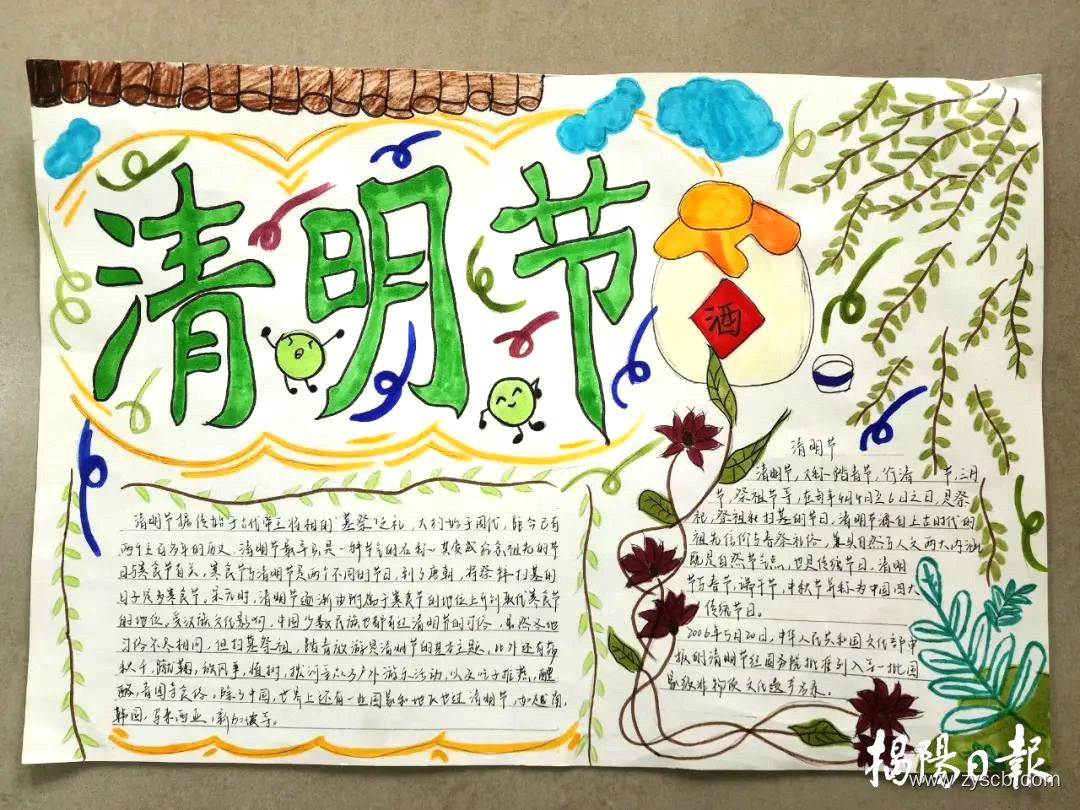 清明节
酒
清明节据传始于古代帝王将相用"墓祭"之礼，大约始于周代，距今已有
两千五百多年的历史，清明节最早只是一种节气的名称，其变成纪念祖先的节
日与寒食节有关，寒食节与清明节是两个不同的节日，到了唐朝，将祭拜扫墓的
日子定为寒食节。宋元时，清明节逐渐由附属于寒食节的地位上升到取代寒食节
的地位。受汉族文化影响，中国少数民族也都有过清明节的习俗，虽然各地
习俗不尽相同，但扫墓祭祖，踏青放游是清明节的基本主题，此外还有荡
秋千，蹴鞠，放风筝，植树，拔河等众多户外游乐活动，以及吃子推燕，醴
酪，青团等食俗，除了中国，世界上还有一些国家和地区也过清明节，如越南，
韩国，马来西亚，新加坡等。
清明节
清明节，又称踏青节，行清节，三月
节，祭祖节等，在每年4月4日至6日之日，是祭
祀，祭祖和扫墓的节日，清明节源自上古时代的
祖先信仰与春祭礼俗，兼具自然与人文两大内涵
既是自然节气点，也是传统节日，清明
节与春节，端午节，中秋节并称为中国四大
传统节日。
2006年5月20日，中华人民共和国文化部申
报的清明节经国务院批准列入第一批国
家级非物质文化遗产名录。
揭陽日報
www.zyscb.com